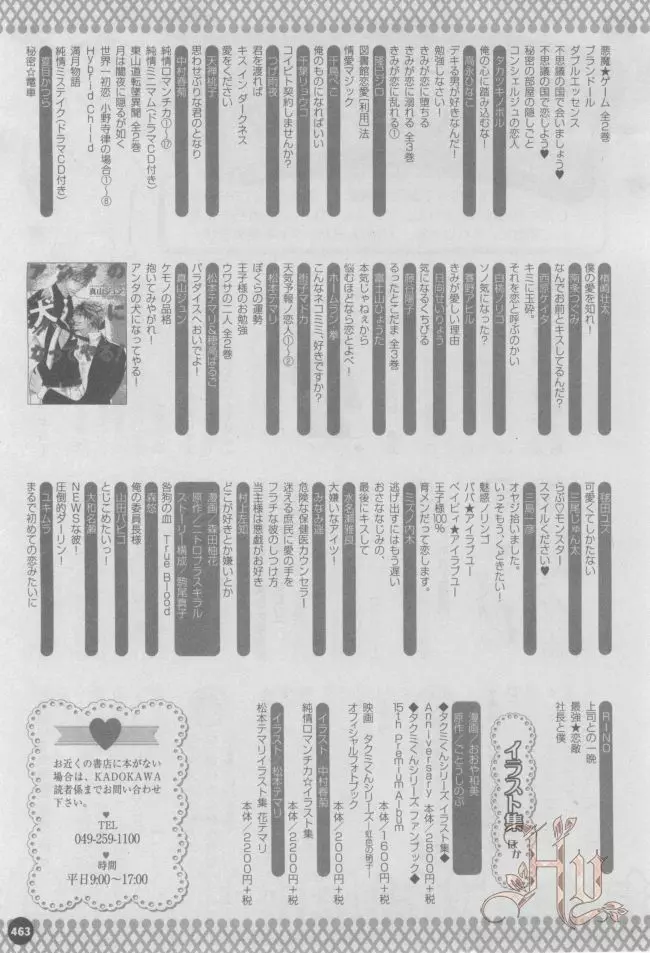 悪魔★ゲーム 全2巻
ブランドール
ダブルエッセンス
不思議の国で会いましょう♥
不思議の国で恋しよう♥
秘密の部屋の隠しごと
コンシェルジュの恋人
タカツキノボル
俺の心に踏み込むな!
高永ひなこ
デキる男が好きなんだ!
勉強しなさい!
きみが恋に堕ちる
きみが恋に溺れる 全3巻
きみが恋に乱れる①
隆巳ジロ
図書館恋愛【利用】法
情愛マジック
千島ぺこ
俺のものになればいい
千葉リョウコ
コイビト契約しませんか?
つげ雨夜
君を渡れば
キス イン ダークネス
愛をください
天禅桃子
思わせぶりな君のとなり
中村春菊
純情ロマンチカ①~⑰
純情ミニマム(ドラマCD付き)
東山道転墜異聞 全2巻
月は闇夜に隠るが如く
世界一初恋 小野寺律の場合①~⑧
Hybrid Child
満月物語
純情ミステイク(ドラマCD付き)
夏目かつら
秘密☆電車
楢崎壮太
僕の愛を知れ!
南条つぐみ
なんでお前とキスしてるんだ?
西原ケイタ
キミに玉砕。
それを恋と呼ぶのかい
白桃ノリコ
ソノ気になった?
きみが愛しい理由
日向せいりょう
気になるくちびる
藤谷陽子
るったとこだま 全3巻
富士山ひょうた
本気じゃねぇから
悩むほどなら恋とよべ!
ホームラン・拳
こんなネコミミ、好きですか?
街子マドカ
天気予報ノ恋人①~②
松本テマリ
ぼくらの運勢
王子様のお勉強
ウワサの二人 全2巻
パラダイスへおいでよ!
真山ジュン
ケモノの品格
抱いてみやがれ!
アンタの犬になってやる!
アンタの
犬に
真山ジュン
毬田ユズ
可愛くてしかたない
らぶ♡モンスター
三尾じゅん太
スマイルください♥
三島一彦
オヤジ拾いました。
いっそもうくどきたい!
魅惑ノリンゴ
パパ★アイラブユー
ベイビィ★アイラブユー
王子様100%
育メンだって恋します。
ミズノ内木
逃げ出すにはもう遅い
おさななじみの、
最後にキスして
水名瀬雅良
大嫌いなアイツ!
みなみ遥
危険な保健医カウンセラー
迷える庶民に愛の手を
フラチな彼のしつけ方
当主様は悪戯がお好き
村上左知
どこが好きとか嫌いとか
漫画/森田柚花
原作/ニトロプラスキラル
ストーリー構成/駒尾真子
咎狗の血 True Blood
森悠
俺の委員長様
山田パピコ
とじこめたいっ!
大和名瀬
NEWSな彼!
圧倒的ダーリン!
ユキムラ
まるで初めての恋みたいに
RINO
上司との一晩
最強★恋敵
社長と僕
イラスト集 ほか
漫画/おおや和美
原作/ごとうしのぶ
◆タクミくんシリーズ イラスト集◆
Anniversary 本体/2800円+税
◆タクミくんシリーズ ファンブック◆
15th Premium Album
本体/1600円+税
映画 タクミくんシリーズ―虹色の硝子―
オフィシャルフォトブック
本体/2000円+税
イラスト 中村春菊
純情ロマンチカ☆イラスト集
本体/2200円+税
イラスト 松本テマリ
松本テマリイラスト集 花テマリ
本体/2200円+税
お近くの書店に本がない
場合は、KADOKAWA
読者係までお問い合わせ
下さい。
♥
TEL
049-259-1100
♥
時間
平日9:00~17:00
Hy
463